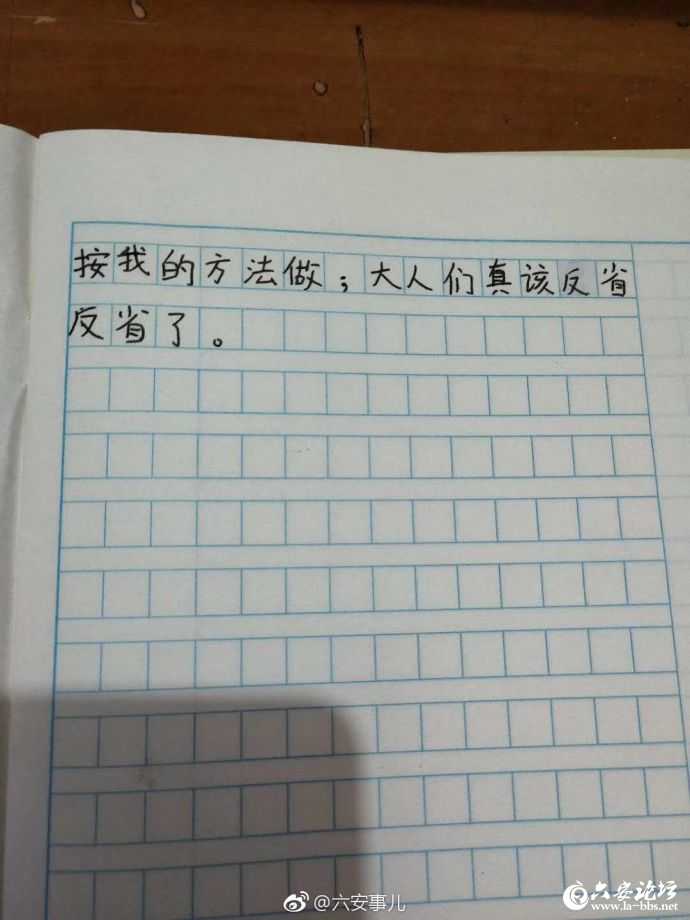 按我的方法做；大人们真该反省
反省了。
@六安事儿
六安论坛
www.la-bbs.net